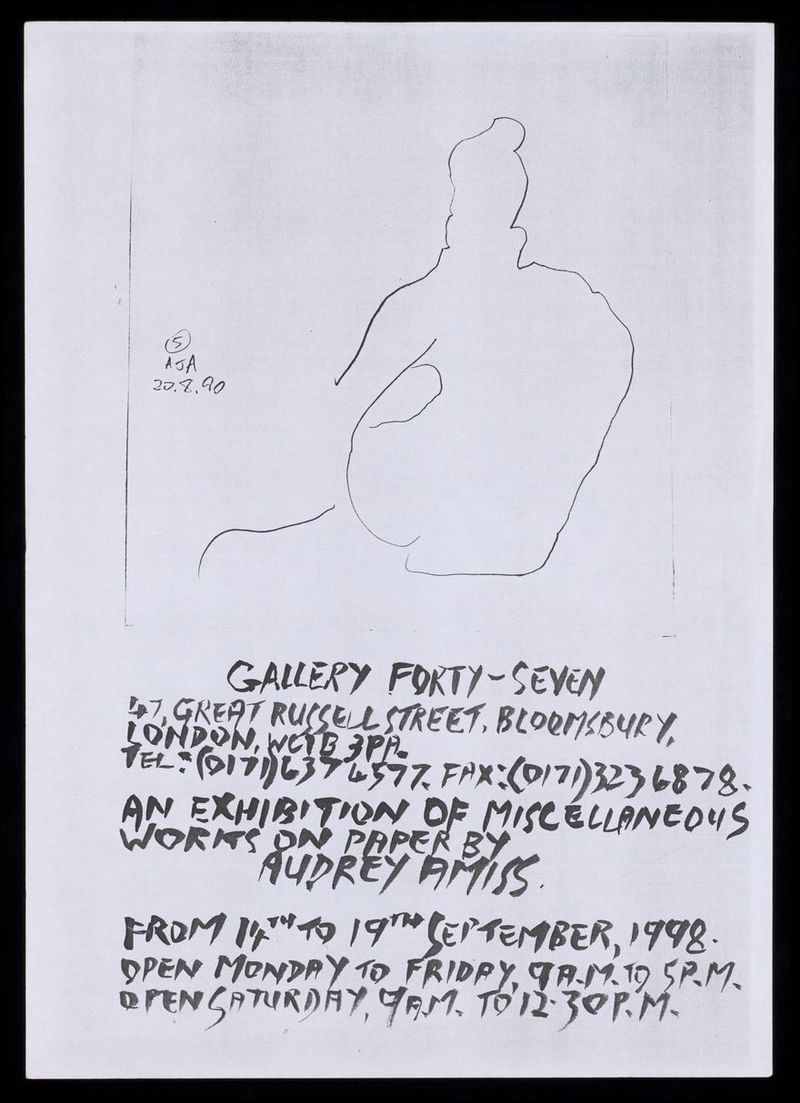 5
AJA
20.8.90
GALLERY FORTY-SEVEN
47, GREAT RUSSELL STREET, BLOOMSBURY,
LONDON, WC1B 3PA.
TEL: (0171) 637 4577. FAX: (0171) 323 6878.
AN EXHIBITION OF MISCELLANEOUS
WORKS ON PAPER BY
AUDREY AMISS.
FROM 14TH TO 19TH SEPTEMBER, 1998.
OPEN MONDAY TO FRIDAY, 9A.M. TO 5P.M.
OPEN SATURDAY, 9A.M. TO 12.30P.M.